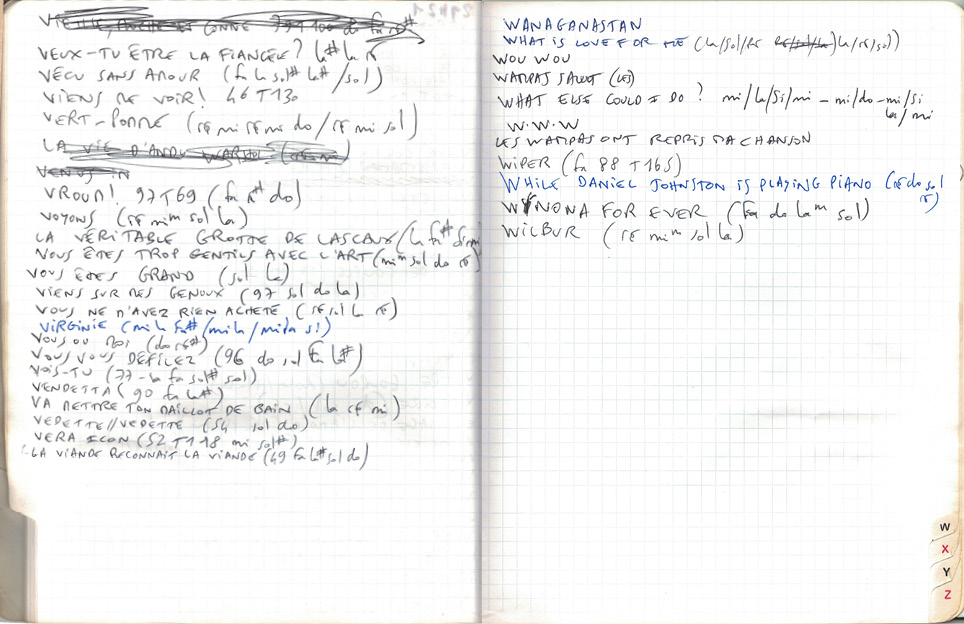 VEUX-TU ÊTRE LA FIANCÉE? la# la ré
VÉCU SANS AMOUR (fa la sol# la#/sol)
VIENS ME VOIR! 46 T130
VERT-POMME (ré mi ré mi do/ré mi sol)
LA VIE D'ANDY WARHOL
VENUS IN
VROUM! 97 T69 (fa ré# do)
VOYONS (ré mim sol la)
LA VÉRITABLE GROTTE DE LASCAUX (la fa#
VOUS ÊTES TROP GENTILS AVEC L'ART (mim sol do ré)
VOUS ÊTES GRAND (sol la)
VIENS SUR MES GENOUX (97 sol do la)
VOUS NE M'AVEZ RIEN ACHETÉ (ré sol la ré)
VIRGINIE (mi la fa#/mi la/mi da si)
VOUS OU MOI (do ré#)
VOUS VOUS DÉFILEZ (96 do sol fa la#)
VOIS-TU (77 - la fa sol# sol)
VENDETTA (90 fa la#)
VA METTRE TON MAILLOT DE BAIN (la ré mi)
VEDETTE//VEDETTE (54 sol do)
VERA ICON (52 T118 mi sol#)
LA VIANDE RECONNAIT LA VIANDE (49 fa la# sol do)
WANAGANASTAN
WHAT IS LOVE FOR ME (la/sol/ré la/ré/sol))
WOU WOU
WAMPAS SALUT (LES)
WHAT ELSE COULD I DO? mi/la/si/mi - mi/do - mi/si
la/mi
W.W.W
LES WAMPAS ONT REPRIS MA CHANSON
WIPER (fa 88 T165)
WHILE DANIEL JOHNSTON IS PLAYING PIANO (ré do sol
ré)
WYNONA FOR EVER (fa do lam sol)
WILBUR (ré mim sol la)
W
X
Y
Z